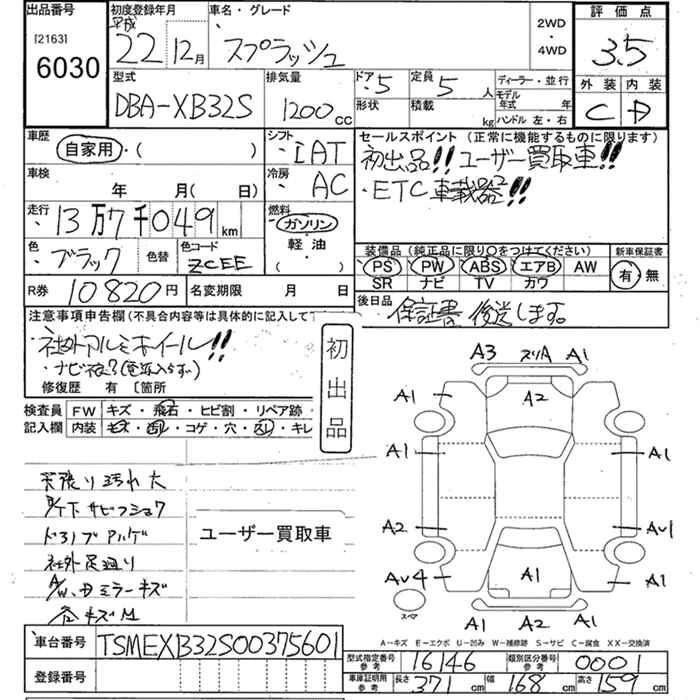 出品番号 初度登録年月 車名・グレード 評価点
[2163] 平成
6030 22年 12月 スプラッシュ 2WD ・ 4WD 3.5
外装 内装
型式 排気量 ドア 定員 ディーラー・並行 C D
DBA-XB32S 1200cc 5 5人 モデル年式 年
形状 積載 kg ハンドル 左・右
車歴 シフト セールスポイント (正常に機能するものに限ります)
自家用・( ) IAT 初出品!! ユーザー買取車!!
車検 冷房 ・ETC車載器!!
年 月( 日) AC
走行 燃料
13万7千049km ガソリン
色 色替 色コード 軽油 装備品 (純正品に限り○をつけてください) 新車保証書
ブラック ZCEE ( ) PS PW ABS エアB AW 有 無
SR ナビ TV カワ
R券 10820円 名変期限 月 日 後日品 保証書 後送します。
注意事項申告欄(不具合内容等は具体的に記入して
・社外アルミホイール!! 初出品
修復歴 有 〔箇所
検査員 FW キズ・飛石・ヒビ割・リペア跡・
記入欄 内装 コゲ・穴・スレ・キレ
A3 A1
A1 A2 A1
A1 A1
天張り汚れ大
ユーザー買取車
A2 Av1
社外足廻り
ミラーキズ
Av4 A1 A1
スペア A1 A2 A1
A-キズ E-エクボ U-凹み W-補修跡 S-サビ C-腐食 XX-交換済
車台番号 TSMEXB32S00375601
型式指定番号 参考 16146 類別区分番号 参考 0001
登録番号 車庫証明用 参考 長さ 371cm 幅 168cm 高さ 159cm